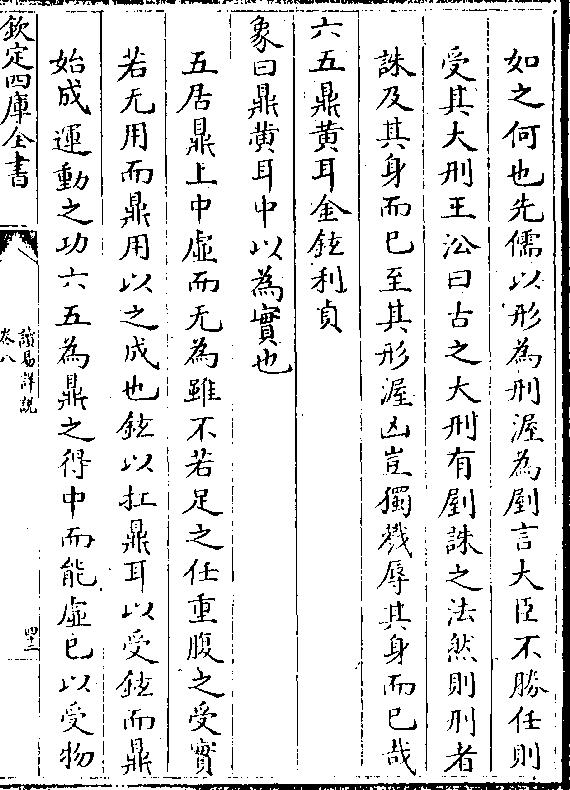 如之何也先儒以形為刑渥為劇言大臣不勝任則
受其大刑王㳂曰古之大刑有劇誅之法然則刑者
誅及其身而已至其形渥凶豈獨戮辱其身而已哉
六五鼎黄耳金鉉利貞
象曰鼎黄耳中以為實也
五居鼎上中虛而无為雖不若足之任重腹之受實
若无用而鼎用以之成也鉉以扛鼎耳以受鉉而鼎
始成運動之功六五為鼎之得中而能虛已以受物
欽定四庫全書
讀易詳說
卷八